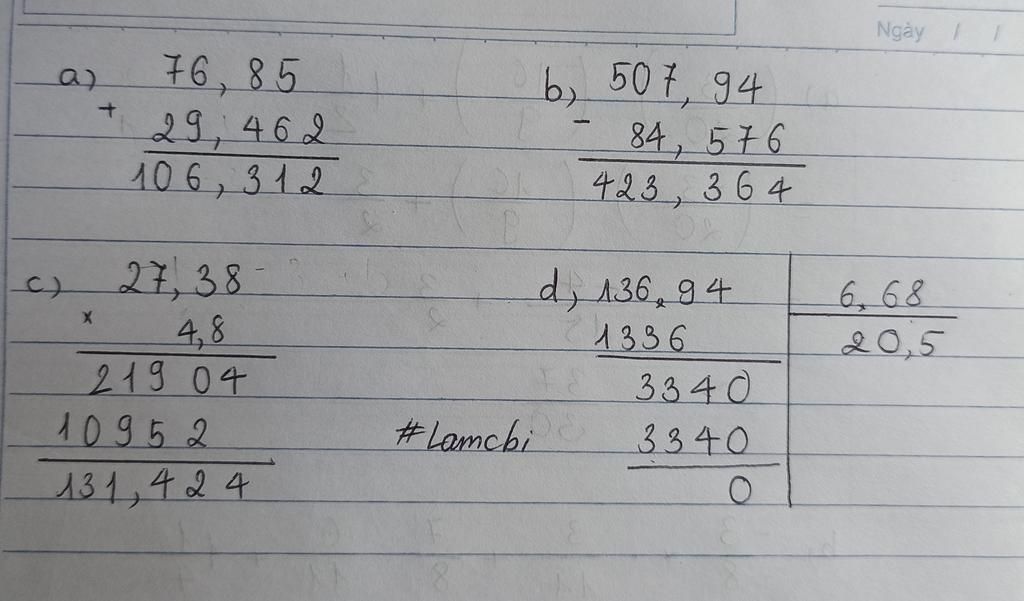 Ngày / /
a) 76,85
+
29,462
106,312
b) 507,94
-
84,576
423,364
c) 27,38
x
4,8
21904
10952
131,424
d) 136,94 6,68
1336 20,5
3340
#Lamcbi 3340
0